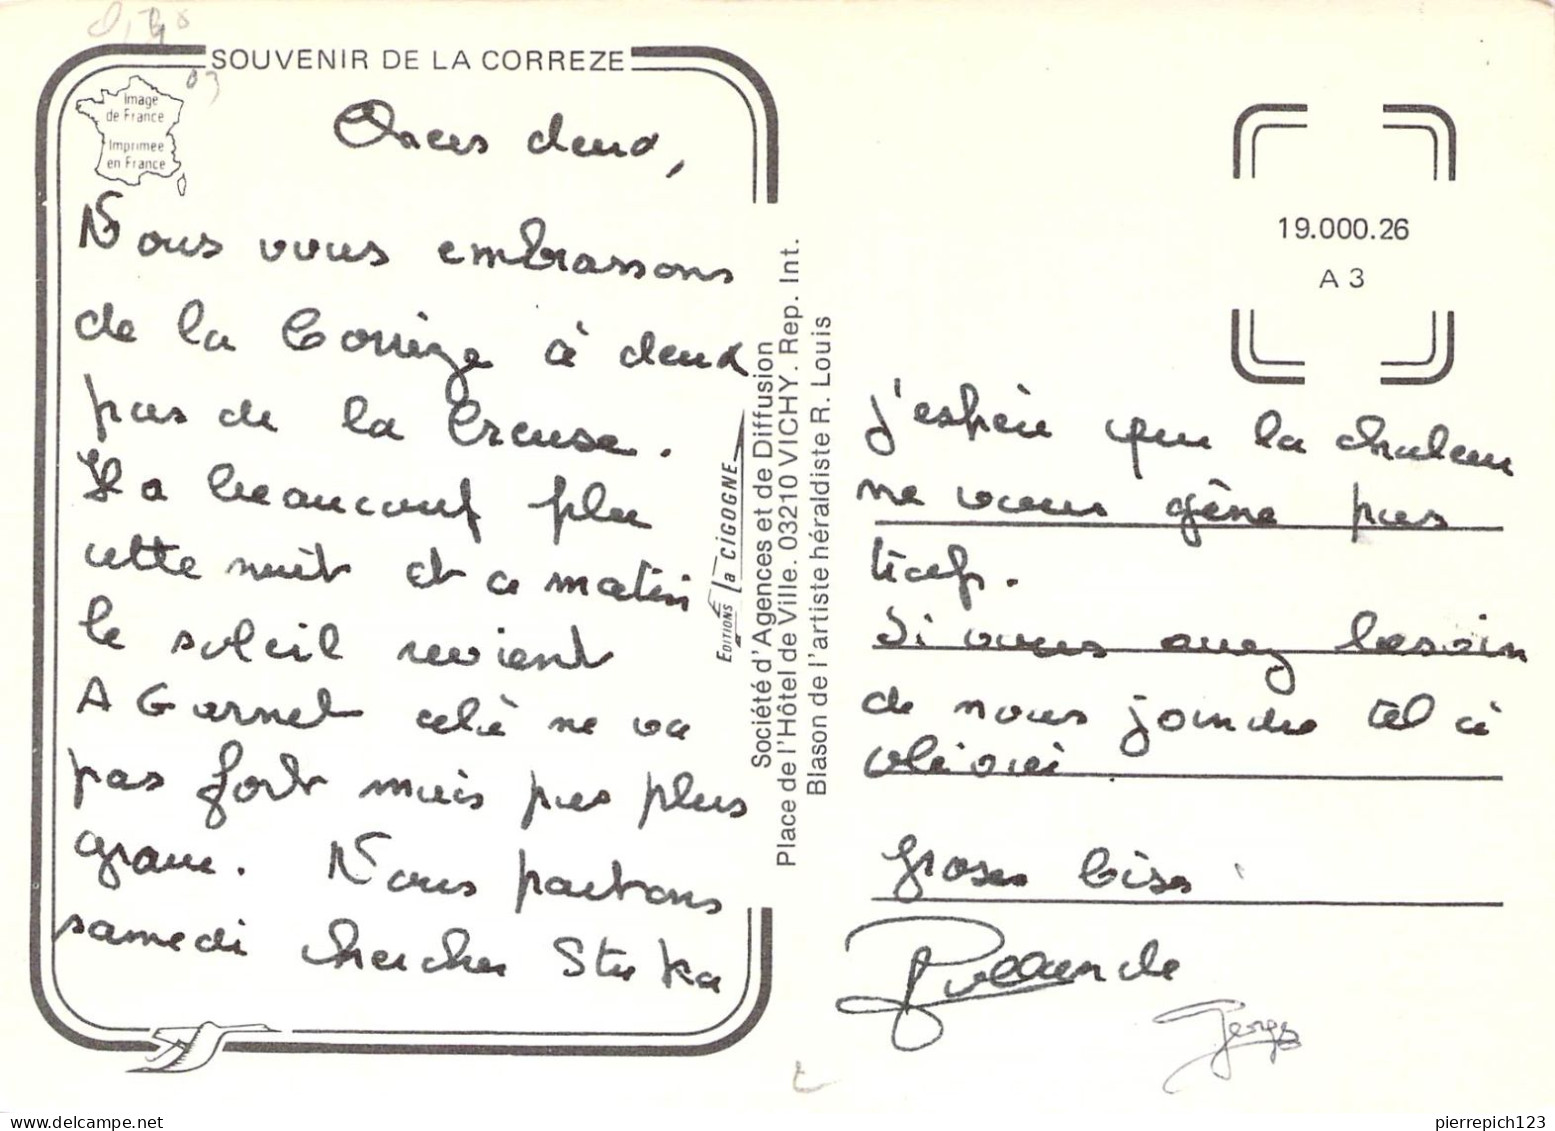 SOUVENIR DE LA CORREZE
Image
de France
Imprimée
en France
deux,
Nous vous embrassons
de la Corrèze à deux
pas de la Creuse.
Il a beaucoup plu
cette nuit et ce matin
le soleil revient
A Garnet ne va
pas fort mais pas plus
grave. Nous partons
samedi chercher Stuka
EDITIONS la CIGOGNE
Société d'Agences et de Diffusion
Place de l'Hôtel de Ville. 03210 VICHY. Rep. Int.
Blason de l'artiste héraldiste R. Louis
19.000.26
A 3
j'espère que la chaleur
ne vous gêne pas
trop.
Si vous avez besoin
de nous joindre tel à
groses bises
Rollande
pierrepich123